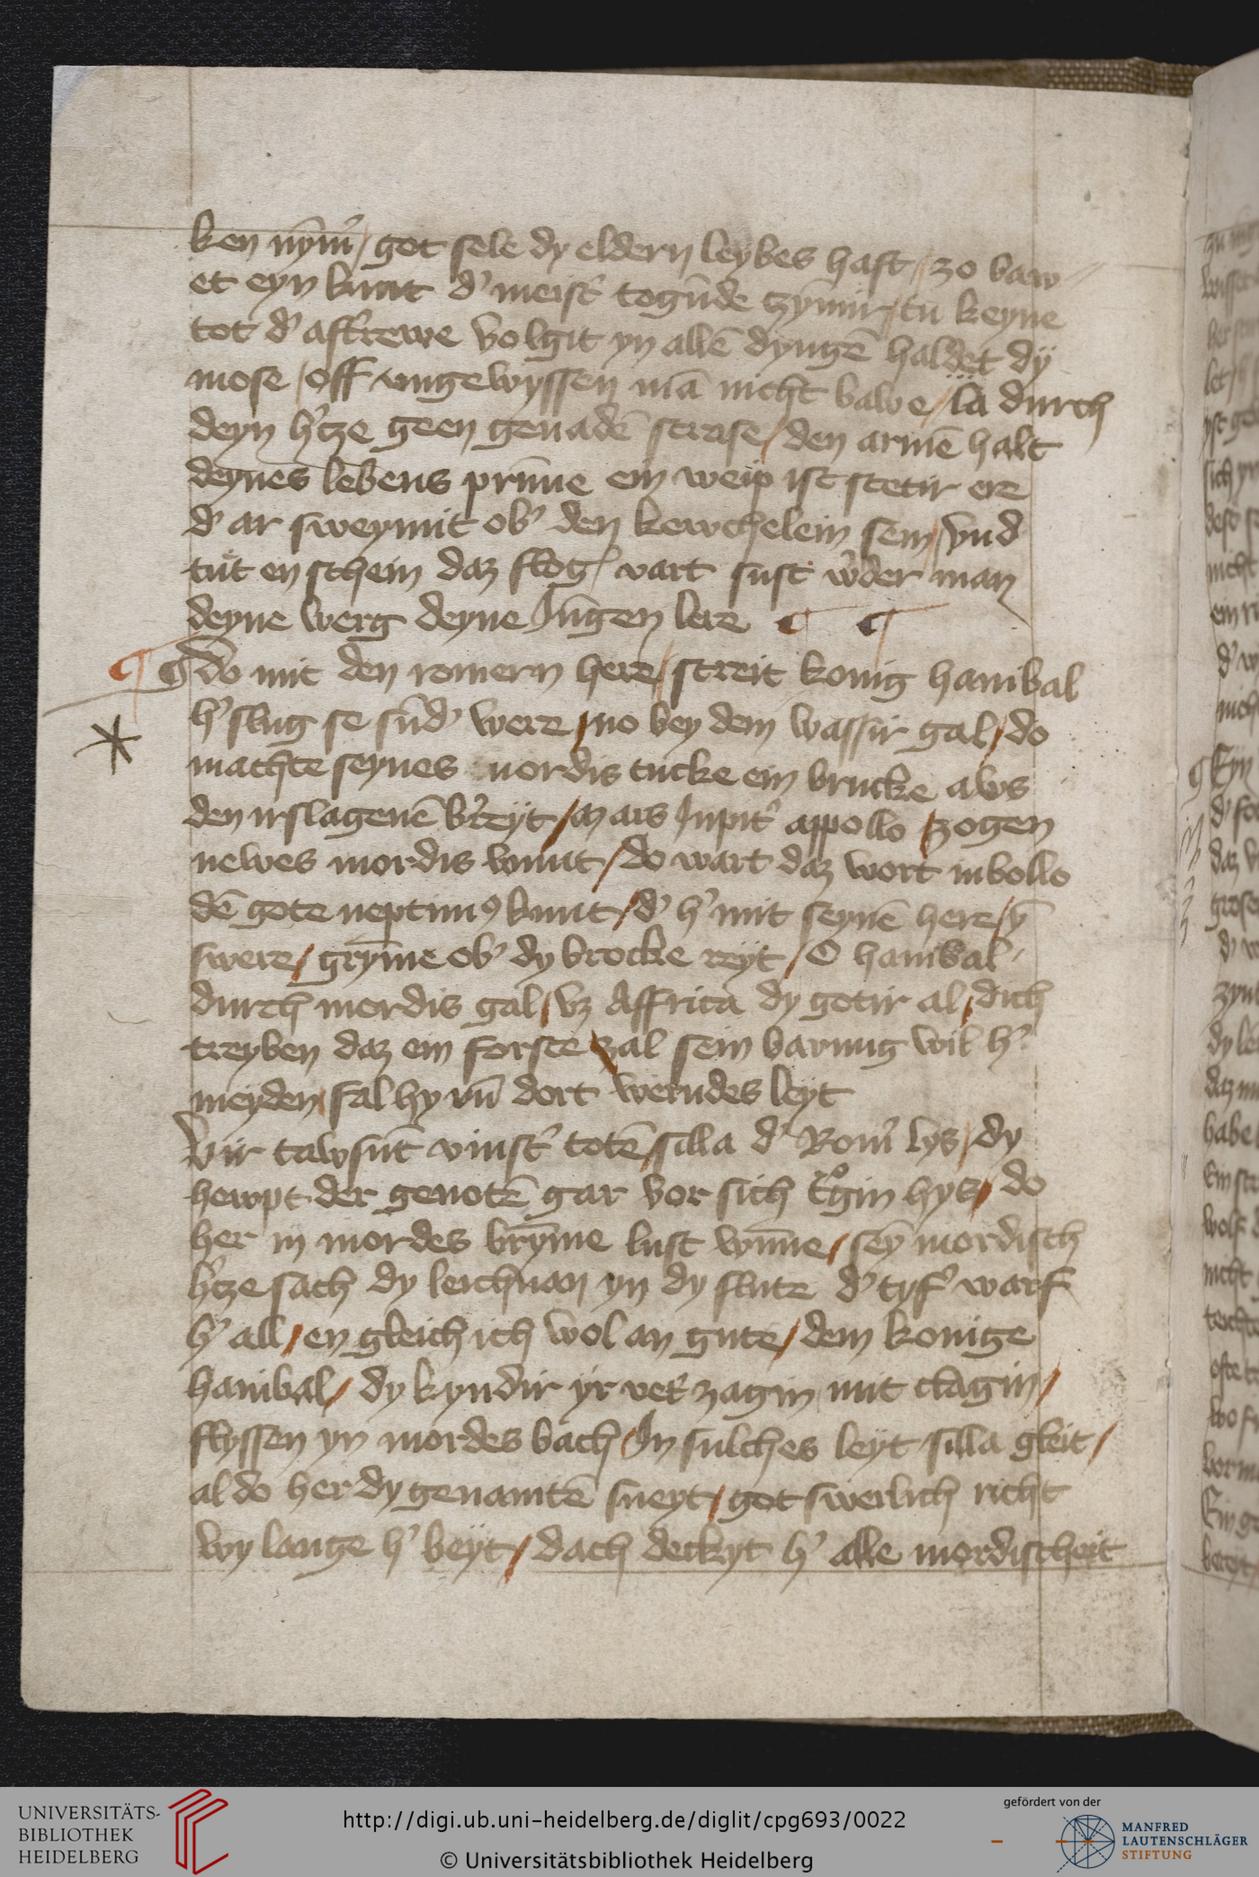 ken nÿm̄ / got sele dy eldern leybes haft / zo baw
et eyn kunt d' meist' togūde czȳmir / tu keyne
tot d' astrewe volgit yn allē dyngē haldet dÿ
mose / off ungewyssen mā nicht bawe / la durch
deyn h'cze geen genadē strase / den armē halt
deynes lebens prīme ein weip ist stetir ere
d' ar sweymit ob' den kewchelein sein / vnd
tut en schein daz flog' vart sust w'der man
deyne werg deyne Jungen lere ¶ ¶
¶ Do mit den romern here / streit konig hanibal
h' slug se sūd' were / no bey dem wassir gal / do
machte seynes mordis tucke ein brucke aws
den irslagenē b'reÿt / Mars Jupit' appollo / zogen
newes mordis wnnt / do wart daz wort inbollo
dē gote neptun9 kunt / d' h' mit seynē here / ȳ
swere / grȳme ob' dy brocke reÿt / O hanibal
durch mordis gal / vz Affrica dy gotir al / dich
treyben daz ein forste zal sein barmug wil h'
meyden / sal hy vn̄ dort werndes leÿt
Vir tawsūt vinst' totē / silla d' Rom' lys / dy
hewpt der genotē gar vor sich t'gin hys / do
her in mordes brȳme lust wȳne / sey mordisch
h'cze sach dy leichnan yn dy flute d' tyf' warf
h' all / en gleich ich wol an gute / dem konige
hanibal / dy kyndir ÿr vet' zagin mit clagin /
flyssen yn mordes bach / In sulches leÿt silla gleit /
al do her dy genantē sneyt / got swerlich richt
wy lange h' beÿt / dach deckyt h' alle mordischeit
UNIVERSITÄTS-
BIBLIOTHEK
HEIDELBERG
http://digi.ub.uni-heidelberg.de/diglit/cpg693/0022
© Universitätsbibliothek Heidelberg
gefördert von der
MANFRED
LAUTENSCHLÄGER
STIFTUNG